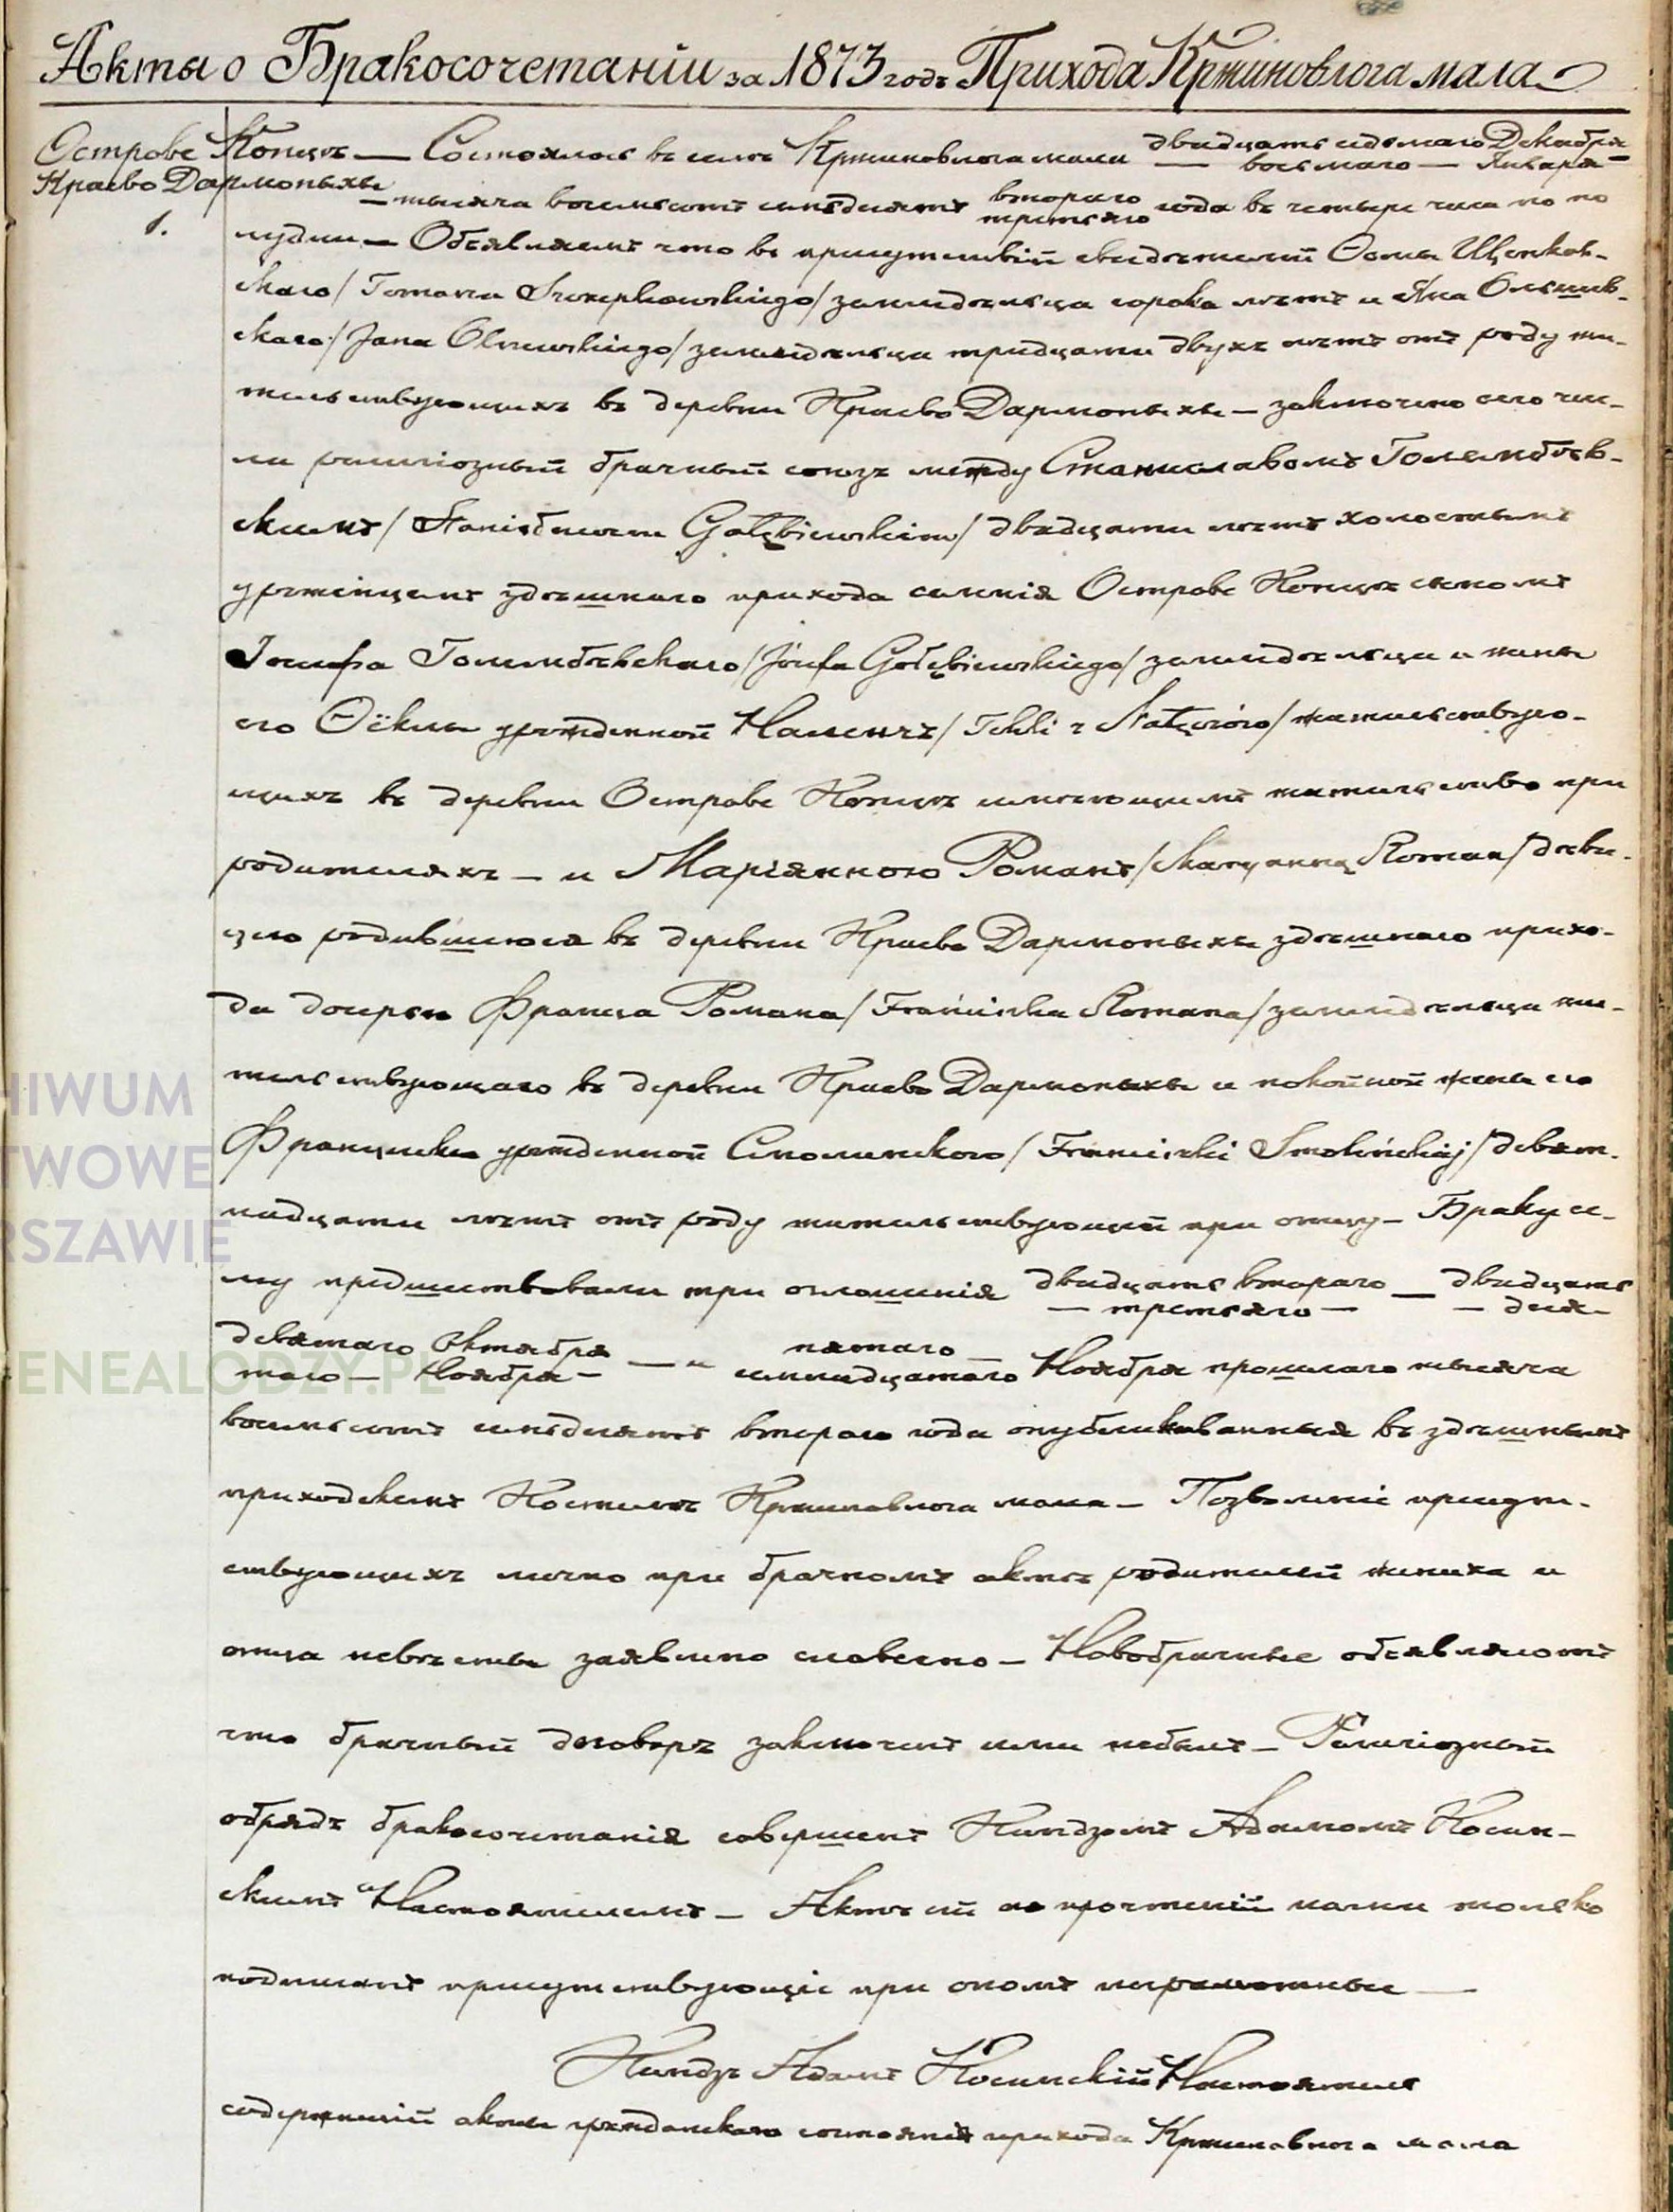 Акты о Бракосочетаніи за 1873 годъ Прихода Кржиновлога мала
Острове Копцѣ — Состоялось въ селѣ Кржиновлога мала двадцать седьмаго Декабря
Краево Дармопыхы — восьмаго — Января —
1.
— тысяча восемьсотъ семьдесятъ втораго третьяго года въ четыре часа по по
лудни — Объявляемъ что въ присутствіи свидѣтелей Ѳомы Щепков-
скаго / Tomasza Szczepkowskiego / земледѣльца сорока лѣтъ и Яна Ольшев-
скаго / Jana Olszewskiego / земледѣльца тридцати двухъ лѣтъ отъ роду жи-
тельствующихъ въ деревни Краево Дармопыхы — заключено сего чис-
ла религіозный брачный союзъ между Станиславомъ Голембѣв-
скимъ / Stanisławem Gołębiewskim / двадцати лѣтъ холостымъ
урженцемъ здѣшнаго прихода селенія Острове Копцѣ сыномъ
Іосифа Голембѣвскаго / Józefa Gołębiewskiego / земледѣльца и жены
его Ѳёклы урожденной Наленчъ / Tekli z Nałęczów / жительствую-
щихъ въ деревни Острове Копцѣ имѣющимъ жительство при
родителяхъ — и Маріянною Романъ / Maryanną Roman / дѣви-
цею родившеюся въ деревни Краево Дармопыхы здѣшнаго прихо-
да дочерью Франца Романа / Franciszka Romana / земледѣльца жи-
тельствующаго въ деревни Краево Дармопыхы и покойной жены его
Францишки урожденной Смолинского / Franciszki Smolińskiej / девят-
надцати лѣтъ отъ роду жительствующей при отцу — Браку се-
му предшествовали три оглошенія двадцать втораго — двадцать
— третьяго — — деся-
девятаго Октября — и пятаго
таго — Ноября — семнадцатаго Ноября прошлаго тысяча
восемьсотъ семьдесятъ втораго года опубликованныя въ здѣшнымъ
приходскимъ Костелѣ Кржиновлога мала — Позволеніе присут-
ствующихъ лично при брачномъ актѣ родителей жениха и
отца невѣсты заявлено словесно — Новобрачные объявляютъ
что брачный договоръ заключенъ ими небылъ — Религіозный
обрядъ бракосочетанія совершенъ Ксендзомъ Адамомъ Косин-
скимъ Настоятелемъ — Актъ сій по прочтеній нами только
подписанъ присутствующіе при ономъ неграмотные —
Ксендзъ Адамъ Косинскій Настоятель
содержащій акты гражданскаго состоянія прихода Кржиновлога мала
HIWUM
TWOWE
RSZAWIE
ENEALODZY.PL